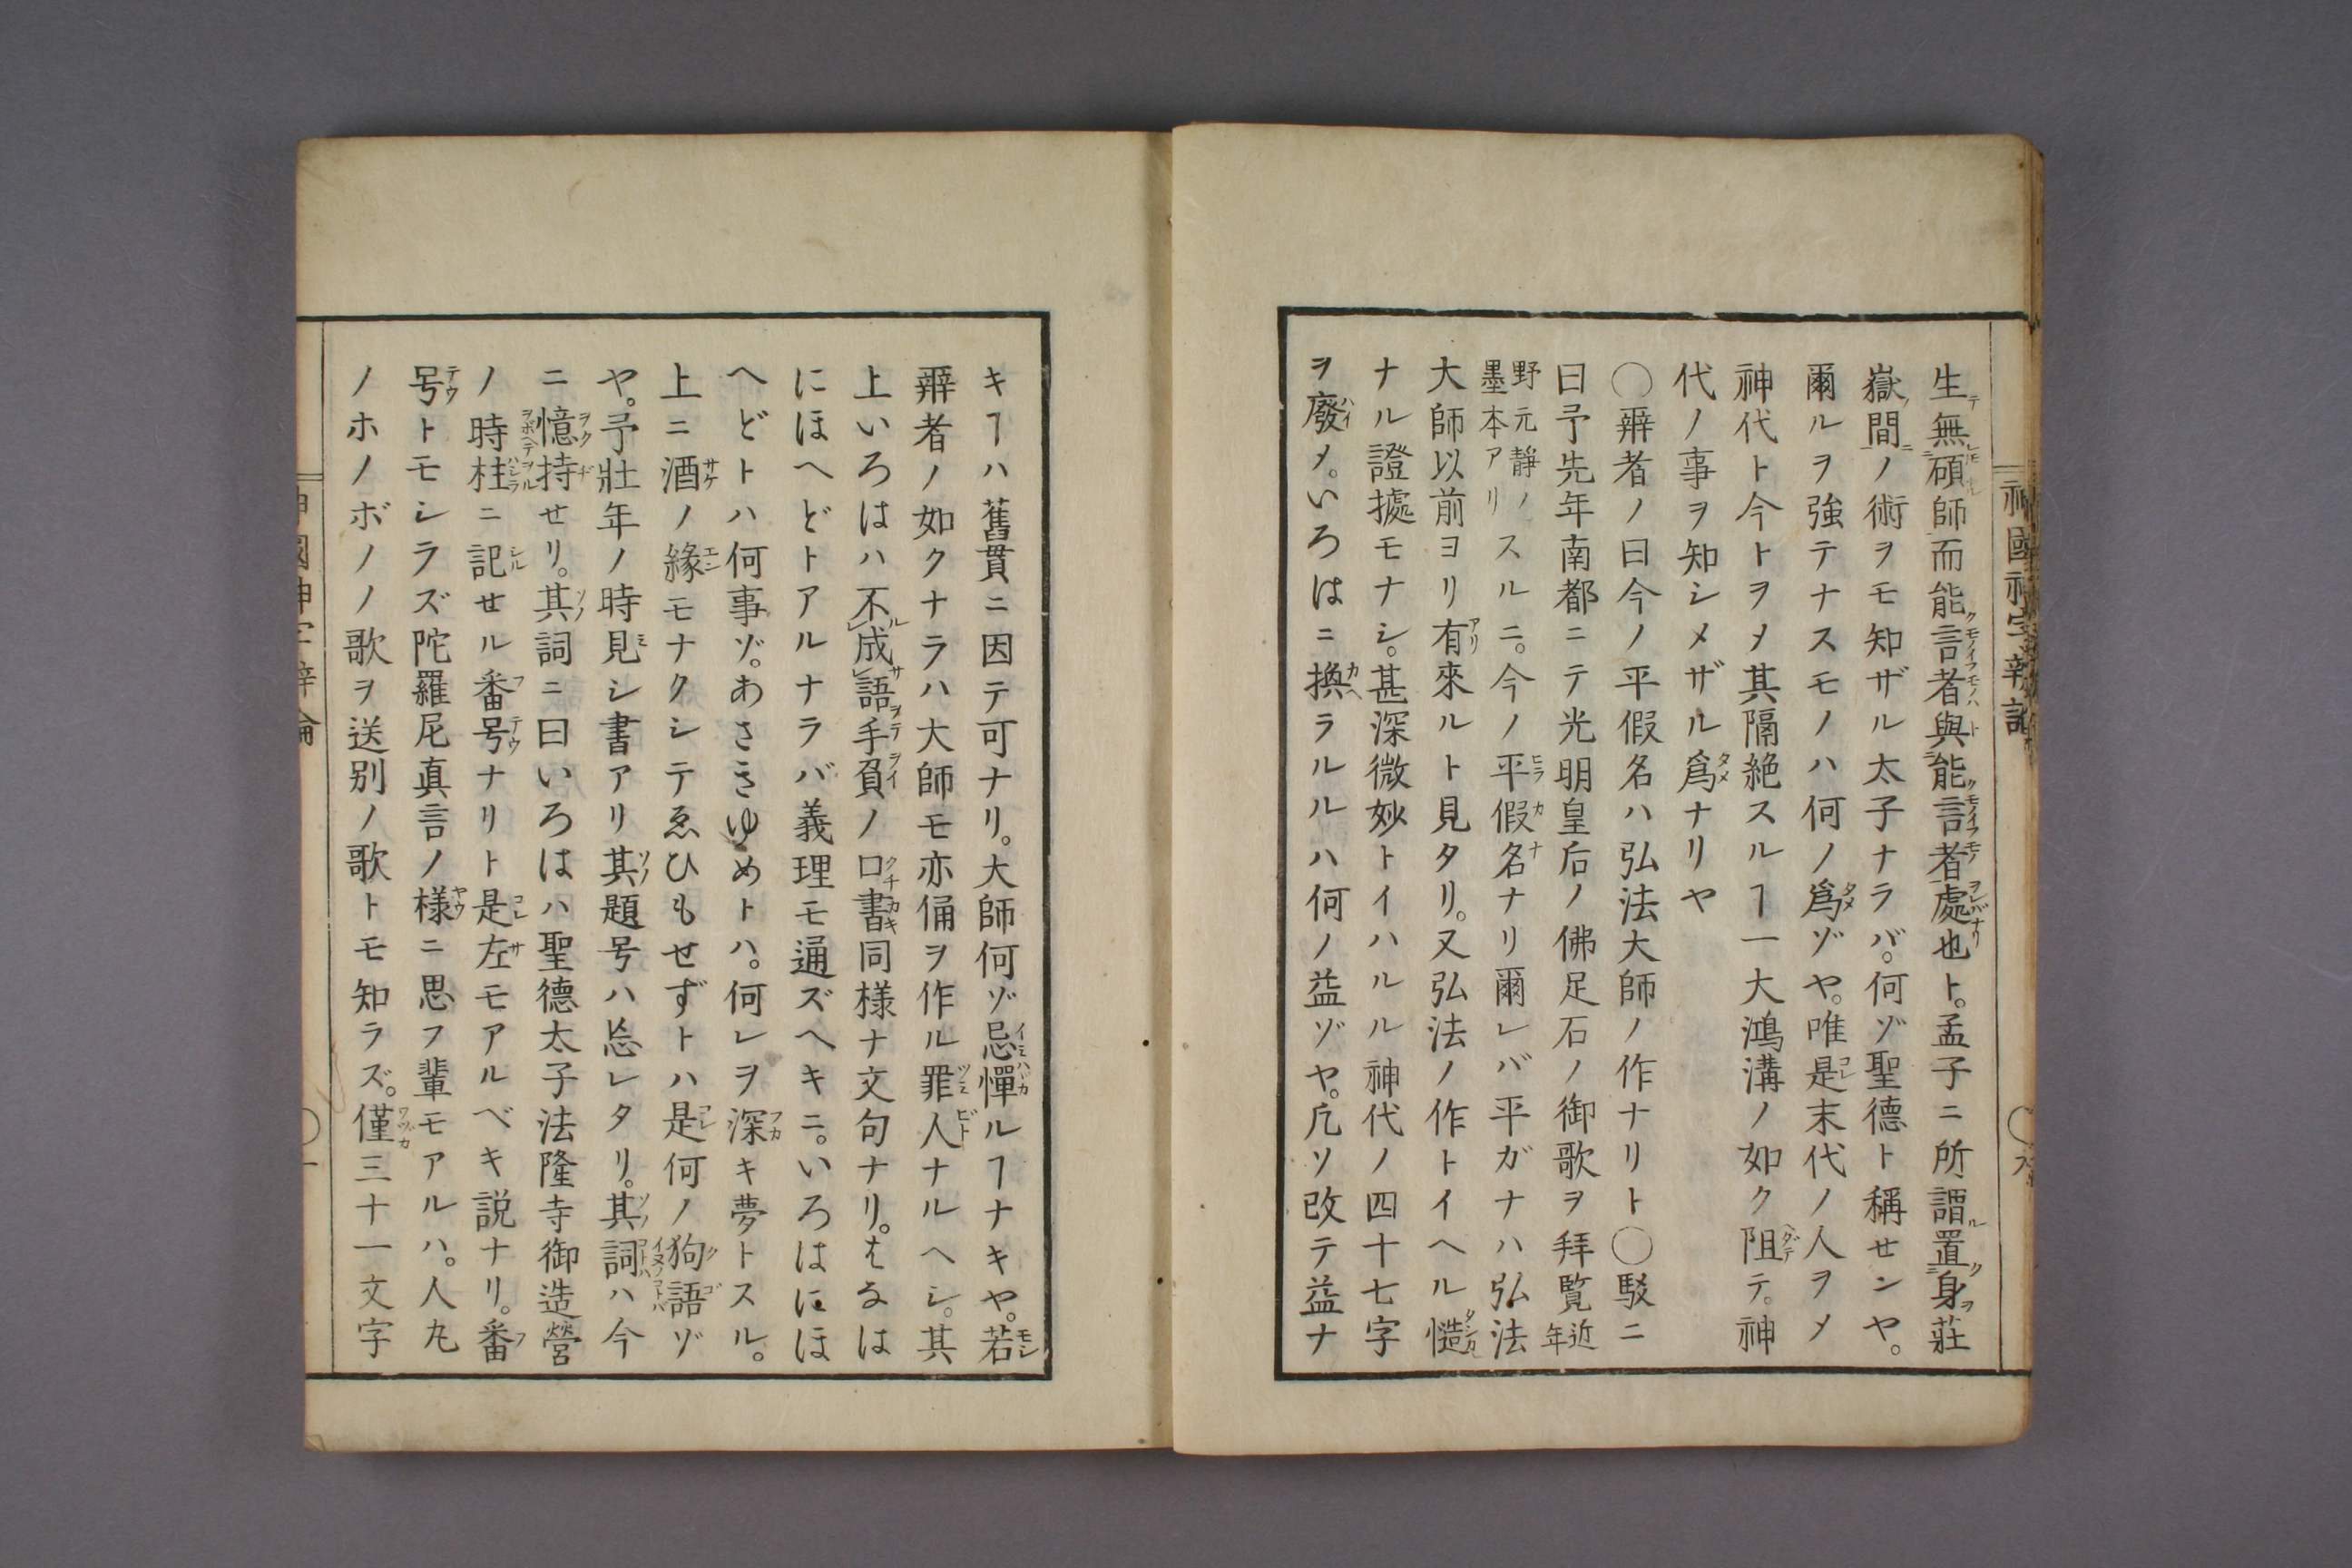 神國神字辨論
生無碩師而能言者與能言者處也ト。孟子ニ所謂置身莊
嶽間ノ術ヲモ知ザル太子ナラバ。何ゾ聖德ト稱せンヤ。
爾ルヲ強テナスモノハ何ノ爲ゾヤ。唯是末代ノ人ヲメ
神代ト今トヲメ其隔絶スルヿ一大鴻溝ノ如ク阻テ。神
代ノ事ヲ知シメザル爲ナリヤ
〇辨者ノ曰今ノ平假名ハ弘法大師ノ作ナリト〇駁ニ
曰予先年南都ニテ光明皇后ノ佛足石ノ御歌ヲ拜覧近年
野元靜ノ墨本アリスルニ。今ノ平假名ナリ爾レバ平ガナハ弘法
大師以前ヨリ有來ルト見タリ。又弘法ノ作トイヘル慥
ナル證據モナシ。甚深微妙トイハルル神代ノ四十七字
ヲ廢メ。いろはニ換ラルルハ何ノ益ゾヤ。凢ソ改テ益ナ
キヿハ舊貫ニ因テ可ナリ。大師何ゾ忌憚ルヿナキヤ。若
辨者ノ如クナラハ大師モ亦俑ヲ作ル罪人ナルヘシ。其
上いろはハ不成語手負ノ口書同様ナ文句ナリ。はなは
にほへどトアルナラバ義理モ通ズヘキニ。いろはにほ
へどトハ何事ゾ。あさきゆめトハ。何レヲ深キ夢トスル。
上ニ酒ノ緣モナクシテゑひもせずトハ是何ノ狗語ゾ
ヤ。予壯年ノ時見シ書アリ其題号ハ忘レタリ。其詞ハ今
ニ憶持せリ。其詞ニ曰いろはハ聖德太子法隆寺御造營
ノ時柱ニ記せル番号ナリト是左モアルベキ説ナリ。番
号トモシラズ陀羅尼真言ノ様ニ思フ輩モアルハ。人丸
ノホノボノノ歌ヲ送別ノ歌トモ知ラズ。僅三十一文字